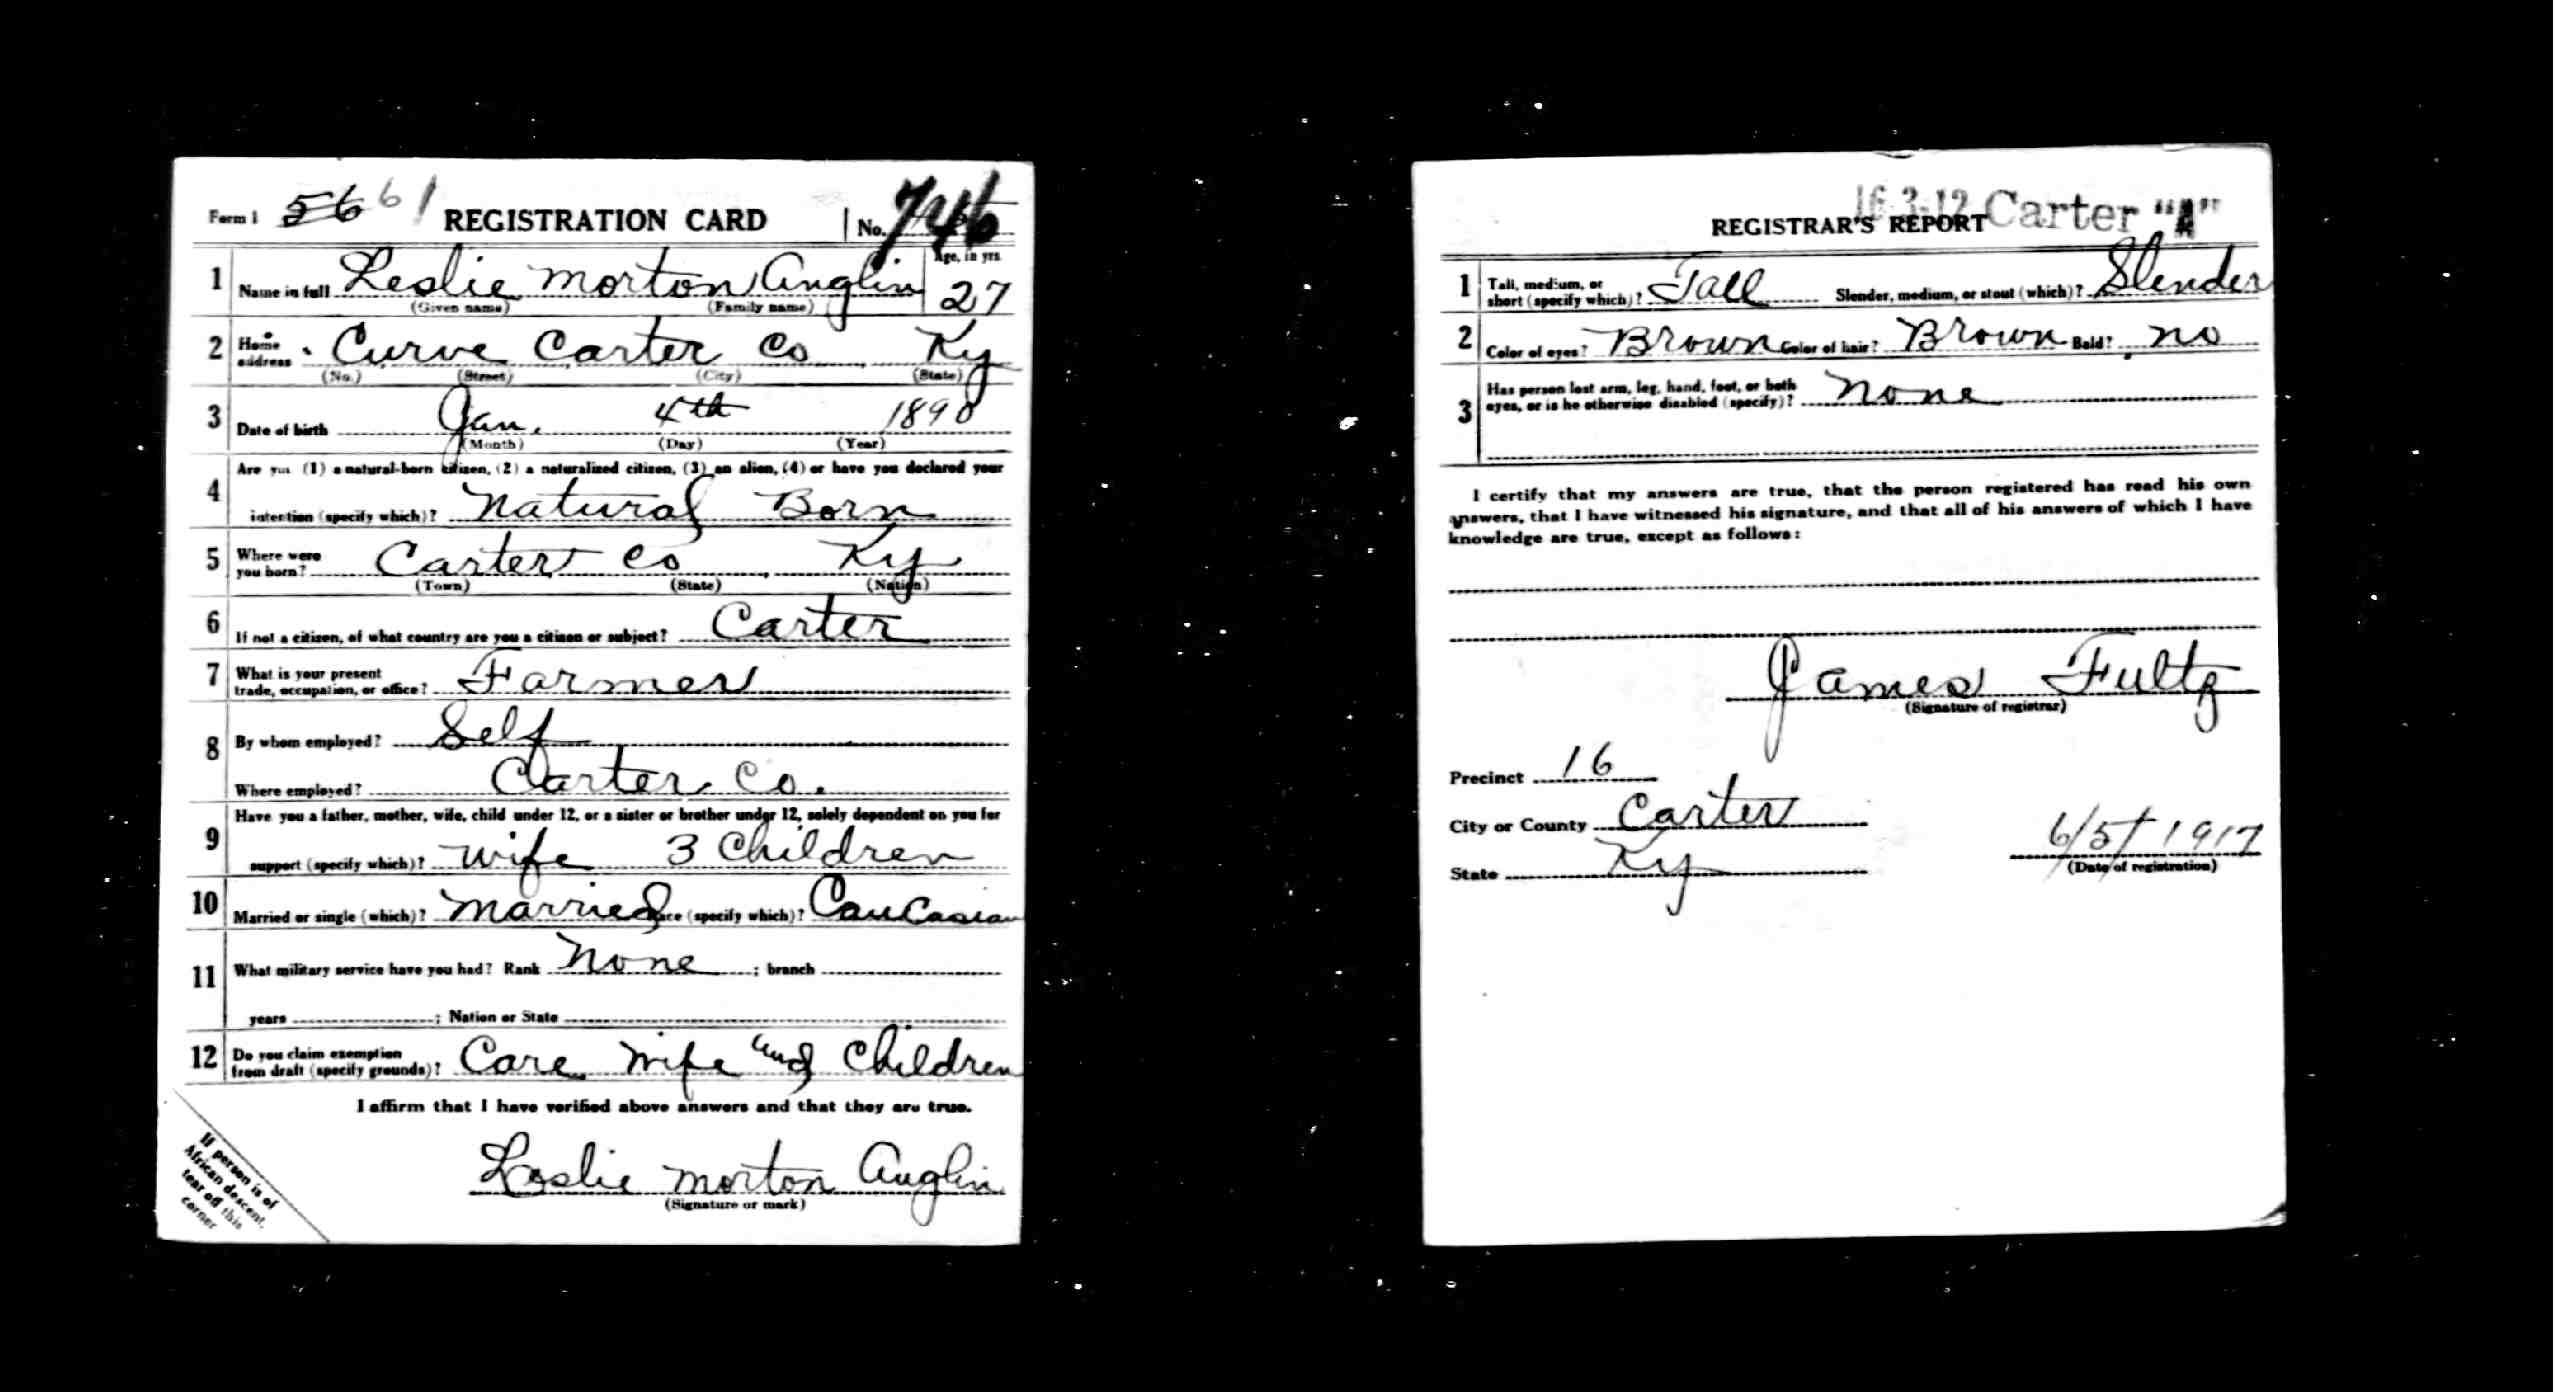 Form 1 56 61 REGISTRATION CARD No. 746
1 Name in full Leslie Morton Anglin Age, in yrs 27
(Given name) (Family name)
2 Home address Curve Carter Co Ky
(No.) (Street) (City) (State)
3 Date of birth Jan. 4th 1890
(Month) (Day) (Year)
4 Are you (1) a natural-born citizen, (2) a naturalized citizen, (3) an alien, (4) or have you declared your
intention (specify which)? Natural Born
5 Where were you born? Carter Co Ky
(Town) (State) (Nation)
6 If not a citizen, of what country are you a citizen or subject? Carter
7 What is your present trade, occupation, or office? Farmer
8 By whom employed? Self
Where employed? Carter Co.
9 Have you a father, mother, wife, child under 12, or a sister or brother under 12, solely dependent on you for
support (specify which)? Wife 3 Children
10 Married or single (which)? Married Race (specify which)? Caucasian
11 What military service have you had? Rank None ; branch
years ; Nation or State
12 Do you claim exemption from draft (specify grounds)? Care Wife and Children
I affirm that I have verified above answers and that they are true.
Leslie Morton Anglin
(Signature or mark)
If person is of
African descent,
tear off this
corner
16-3-12 Carter "A"
REGISTRAR'S REPORT
1 Tall, medium, or short (specify which)? Tall Slender, medium, or stout (which)? Slender
2 Color of eyes? Brown Color of hair? Brown Bald? no
3 Has person lost arm, leg, hand, foot, or both
eyes, or is he otherwise disabled (specify)? None
I certify that my answers are true, that the person registered has read his own
answers, that I have witnessed his signature, and that all of his answers of which I have
knowledge are true, except as follows:
James Fultz
(Signature of registrar)
Precinct 16
City or County Carter
State Ky
6/5/1917
(Date of registration)